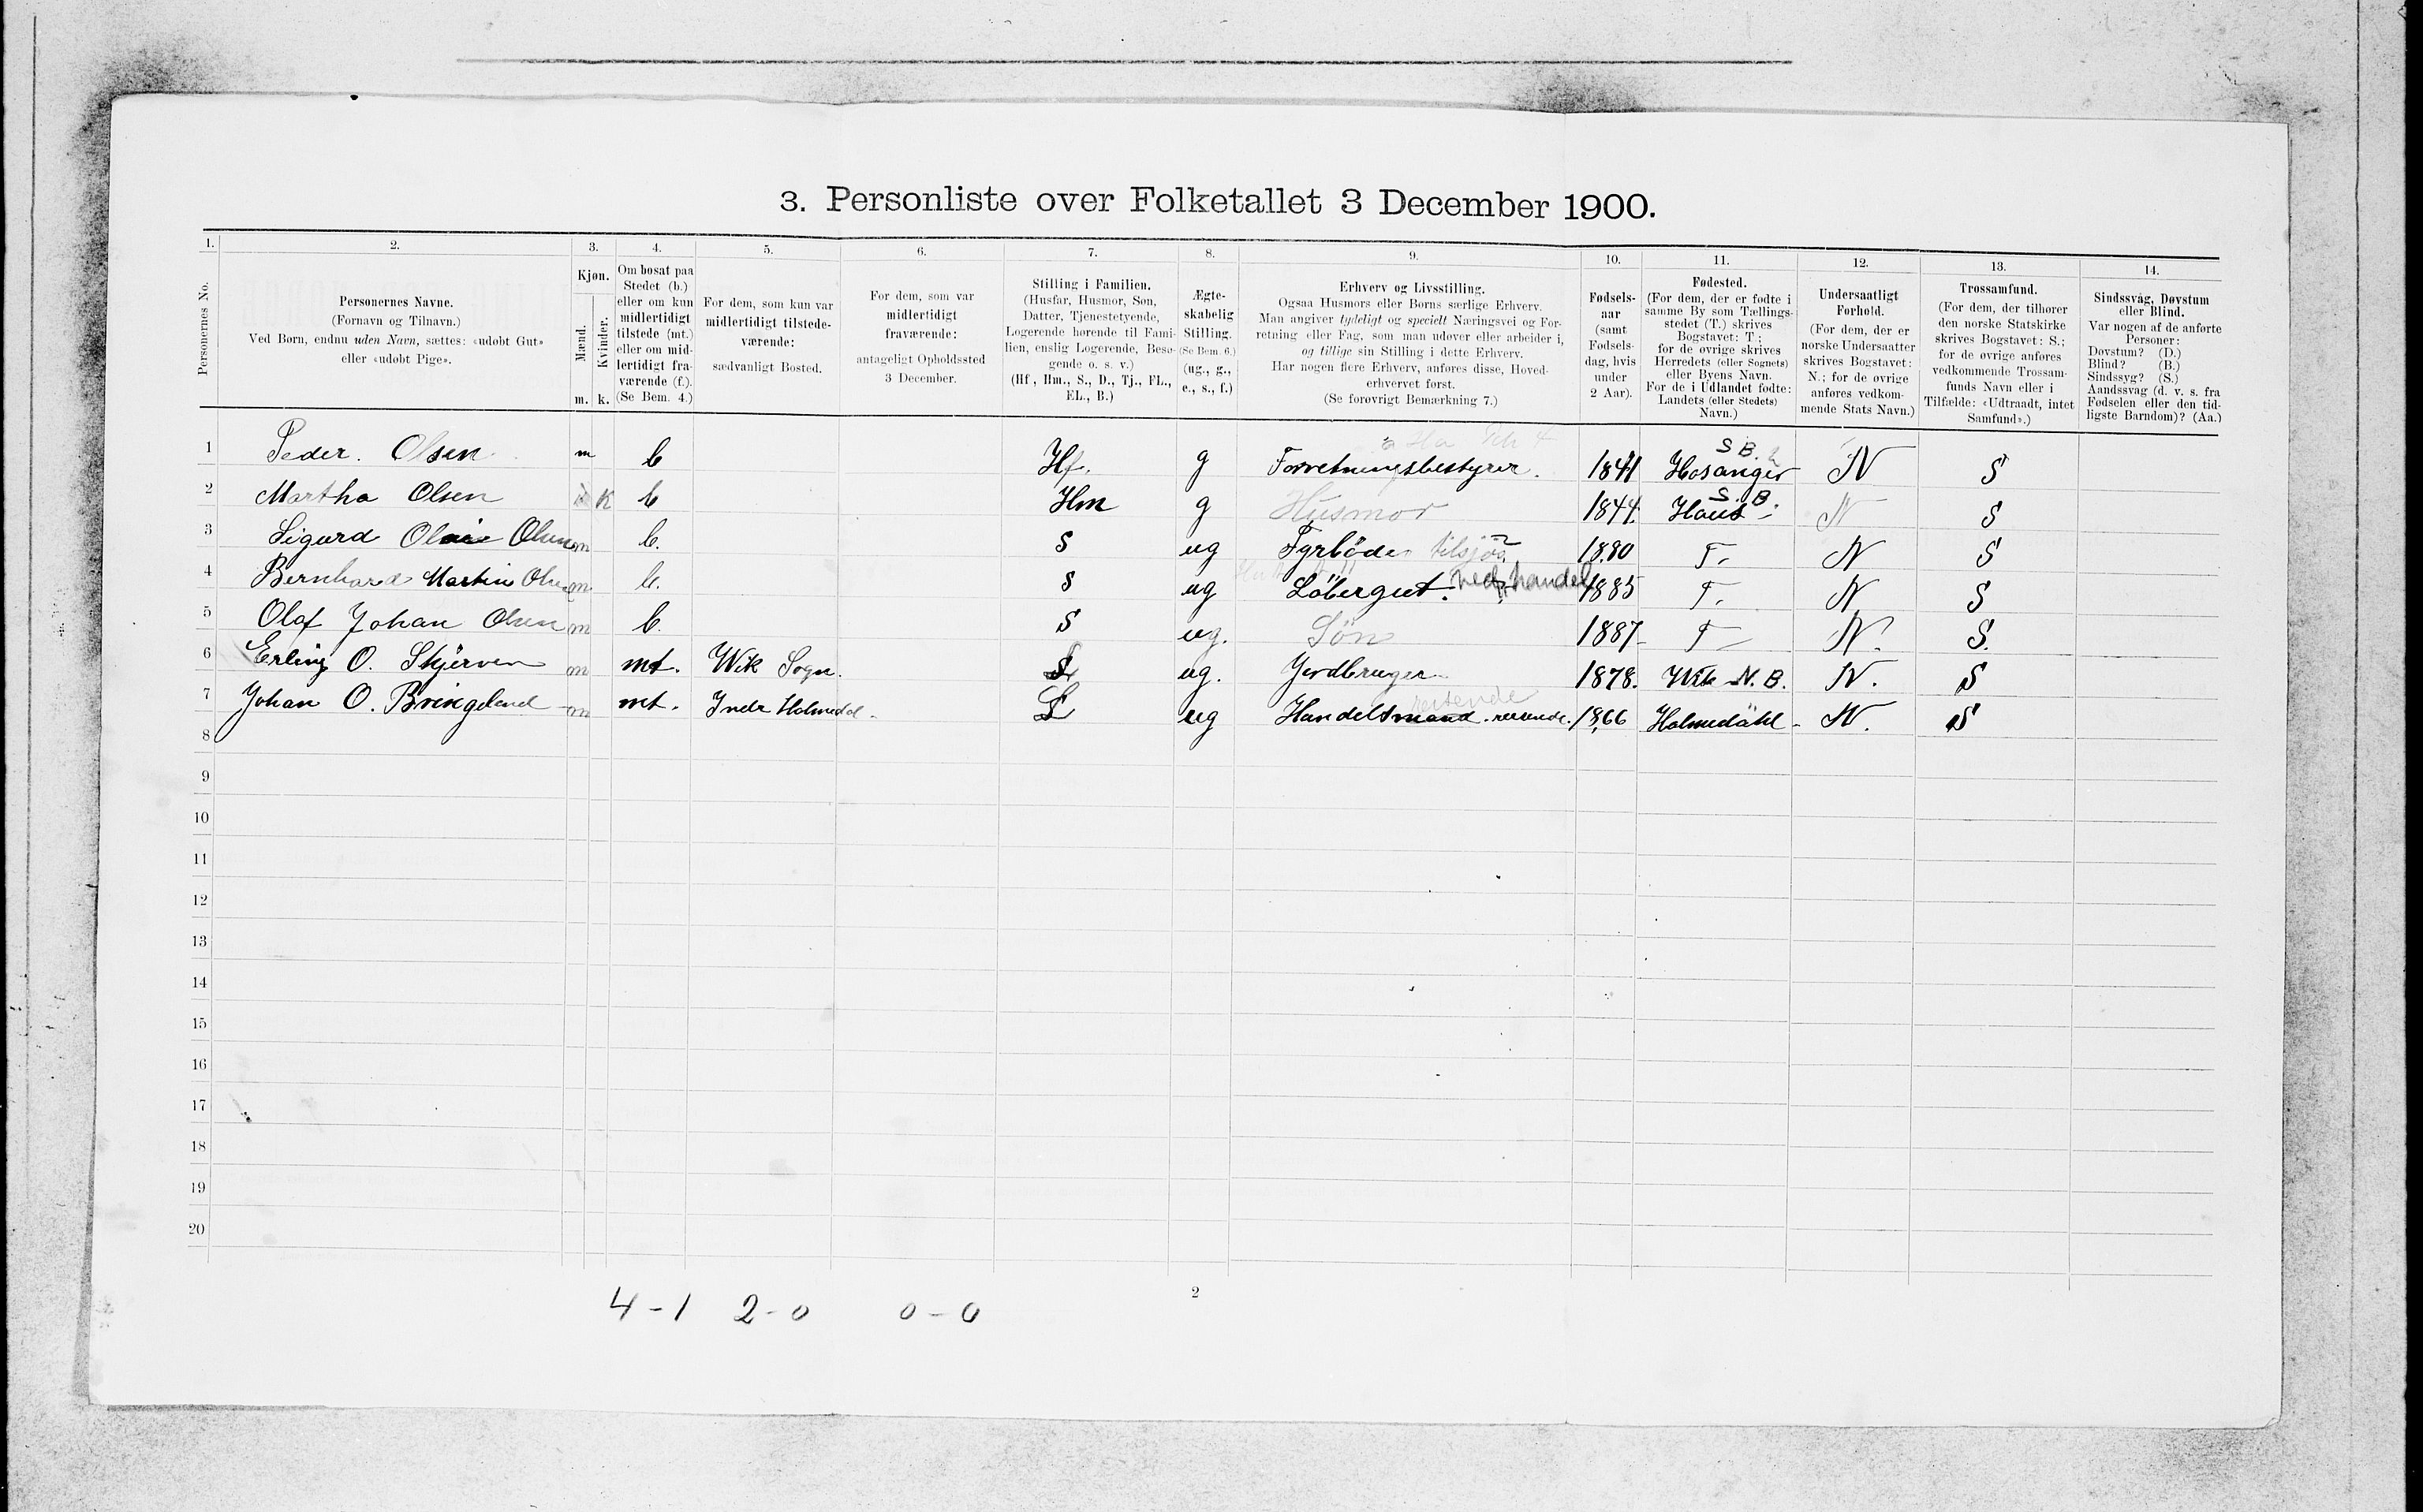 3. Personliste over Folketallet 3 December 1900.
1. 2. 3. 4. 5. 6. 7. 8. 9. 10. 11. 12. 13. 14.
Personernes No.
Personernes Navne.
(Fornavn og Tilnavn.)
Ved Børn, endnu uden Navn, sættes: «udøbt Gut»
eller «udøbt Pige».
Kjøn.
Mænd.
Kvinder.
m. k.
Om bosat paa
Stedet (b.)
eller om kun
midlertidigt
tilstede (mt.)
eller om mid-
lertidigt fra-
værende (f.).
(Se Bem. 4.)
For dem, som kun var
midlertidigt tilstede-
værende:
sædvanligt Bosted.
For dem, som var
midlertidigt
fraværende:
antageligt Opholdssted
3 December.
Stilling i Familien.
(Husfar, Husmor, Søn,
Datter, Tjenestetyende,
Logerende hørende til Fami-
lien, enslig Logerende, Besø-
gende o. s. v.)
(Hf., Hm., S., D., Tj., FL.,
EL., B.)
Ægte-
skabelig
Stilling.
(Se Bem. 6.)
(ug., g.,
e., s., f.)
Erhverv og Livsstilling.
Ogsaa Husmors eller Børns særlige Erhverv.
Man angiver tydeligt og specielt Næringsvei og For-
retning eller Fag, som man udøver eller arbeider i,
og tillige sin Stilling i dette Erhverv.
Har nogen flere Erhverv, anføres disse, Hoved-
erhvervet først.
(Se forøvrigt Bemærkning 7.)
Fødsels-
aar
(samt
Fødsels-
dag, hvis
under
2 Aar).
Fødested.
(For dem, der er fødte i
samme By som Tællings-
stedet (T.) skrives
Bogstavet: T.;
for de øvrige skrives
Herredets (eller Sognets)
eller Byens Navn.
For de i Udlandet fødte:
Landets (eller Stedets)
Navn.)
Undersaatligt
Forhold.
(For dem, der er
norske Undersaatter
skrives Bogstavet:
N.; for de øvrige
anføres vedkom-
mende Stats Navn.)
Trossamfund.
(For dem, der tilhører
den norske Statskirke
skrives Bogstavet: S.;
for de øvrige anføres
vedkommende Trossam-
funds Navn eller i
Tilfælde: «Udtraadt, intet
Samfund».)
Sindssvag, Døvstum
eller Blind.
Var nogen af de anførte
Personer:
Døvstum? (D.)
Blind? (B.)
Sindssyg? (S.)
Aandssvag (d. v. s. fra
Fødselen eller den tid-
ligste Barndom)? (Aa.)
1 Peder. Olsen m b Hf. g Forretningsbestyrer. 1841 Hosanger S B. N S
2 Martha Olsen k b Hm g Husmor 1844. Haus S. B. N S
3 Sigurd Olsen m b. S ug Fyrböder tilsjös 1880 T. N S
4 Bernhard Martin Olsen m b. S ug Löbergut. ved handel 1885 T. N S
5 Olaf Johan Olsen m b. S ug. Sön 1887 T N. S.
6 Erling O. Skjerven m mt. Wik Sogn. L ug. Jordbruger 1878. Wik N. B. N. S
7 Johan O. Bringeland m mt. Indr Holmedal. L ug Handelsmand. reisende. 1866 Holmedahl N. S
reisende
8
9
10
11
12
13
14
15
16
17
18
19
20
4-1 2-0 0-0
2